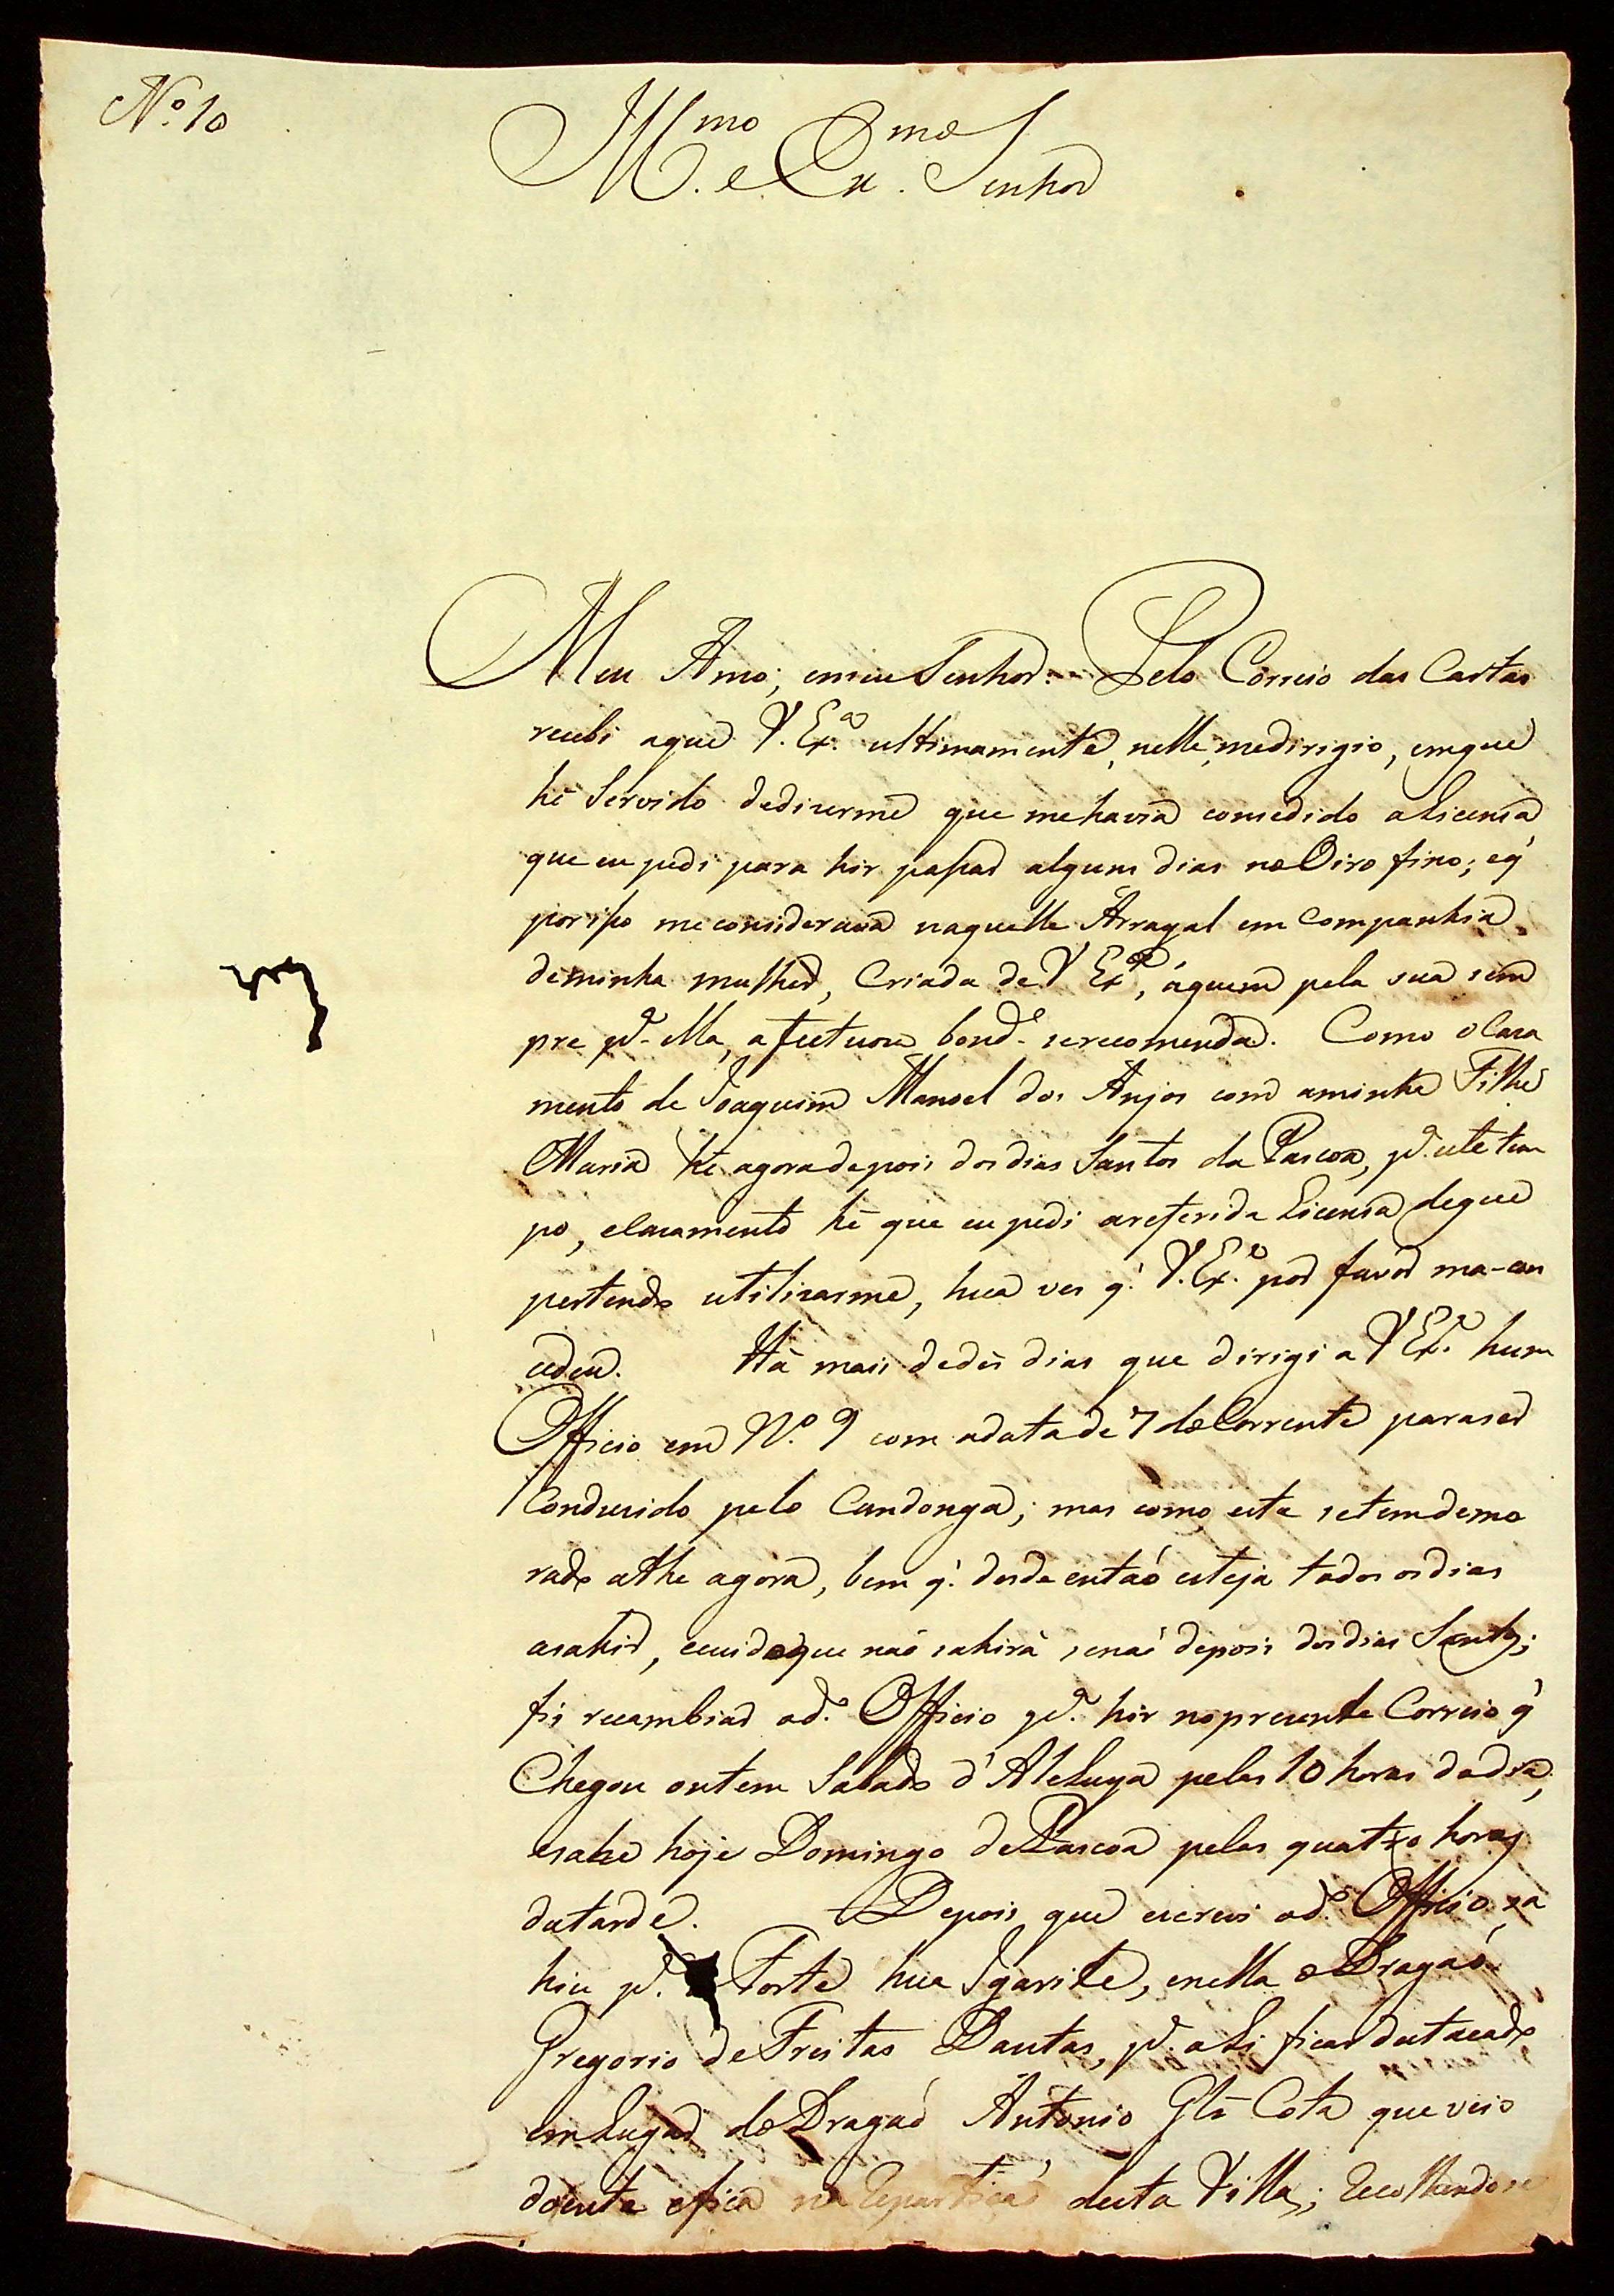 Nº 10
Illmo. e Exmo. Senhor
Meu Amo, e meu Senhor. Pelo Correio das Cartas
recebi a que V. Exa. ultimamente, nelle, me dirigio, em que
hé Servido dedizerme que mehavia consedido a Licensa
que eu pedi para hir passar alguns dias no Oiro fino; e q'
por isso me considerava naquelle Arrayal em Companhia
deminha mulher, Criada de V Exa., áquem pela sua sem
pre pa. ella, afectuoza bond.e serecomenda. Como o Caza
mento de Joaquim Manoel dos Anjos com aminha Filha
Maria hé agora depois dos dias Santos da Pascoa, pa. este tem
po, e Cazamento hé que eu pedi areferida Licensa de que
pertendo utilizarme, hua ves q' V. Exa. por favor ma-con
cedeu. Há mais de des dias que dirigi a V Exa. hum
Officio em Nº. 9 com adata de 7 do Corrente para ser
Conduzido pelo Candonga; mas como este setem demo
rado athe agora, bem q' desde entaó esteja todos os dias
asahir, e cuido que naó sahirá senaó depois dos dias Santos;
fis recambiar o do. Officio pa. hir no prezente Correio q'
Chegou ontem Sabado d'Aleluya pelas 10 horas do dia,
esahe hoje Domingo de Pascoa pelas quatro horas
da tarde. Depois que escrevi o do. Officio sa
hiu pa. o Forte hua Igarite, e nella o Dragaó
Gregorio de Freitas Dantas, pa. ali ficar destacado
em Lugar do Dragaó Antonio Glz Cota que veio
doente e fica na Repartiçaó desta Villa; Recolhendose